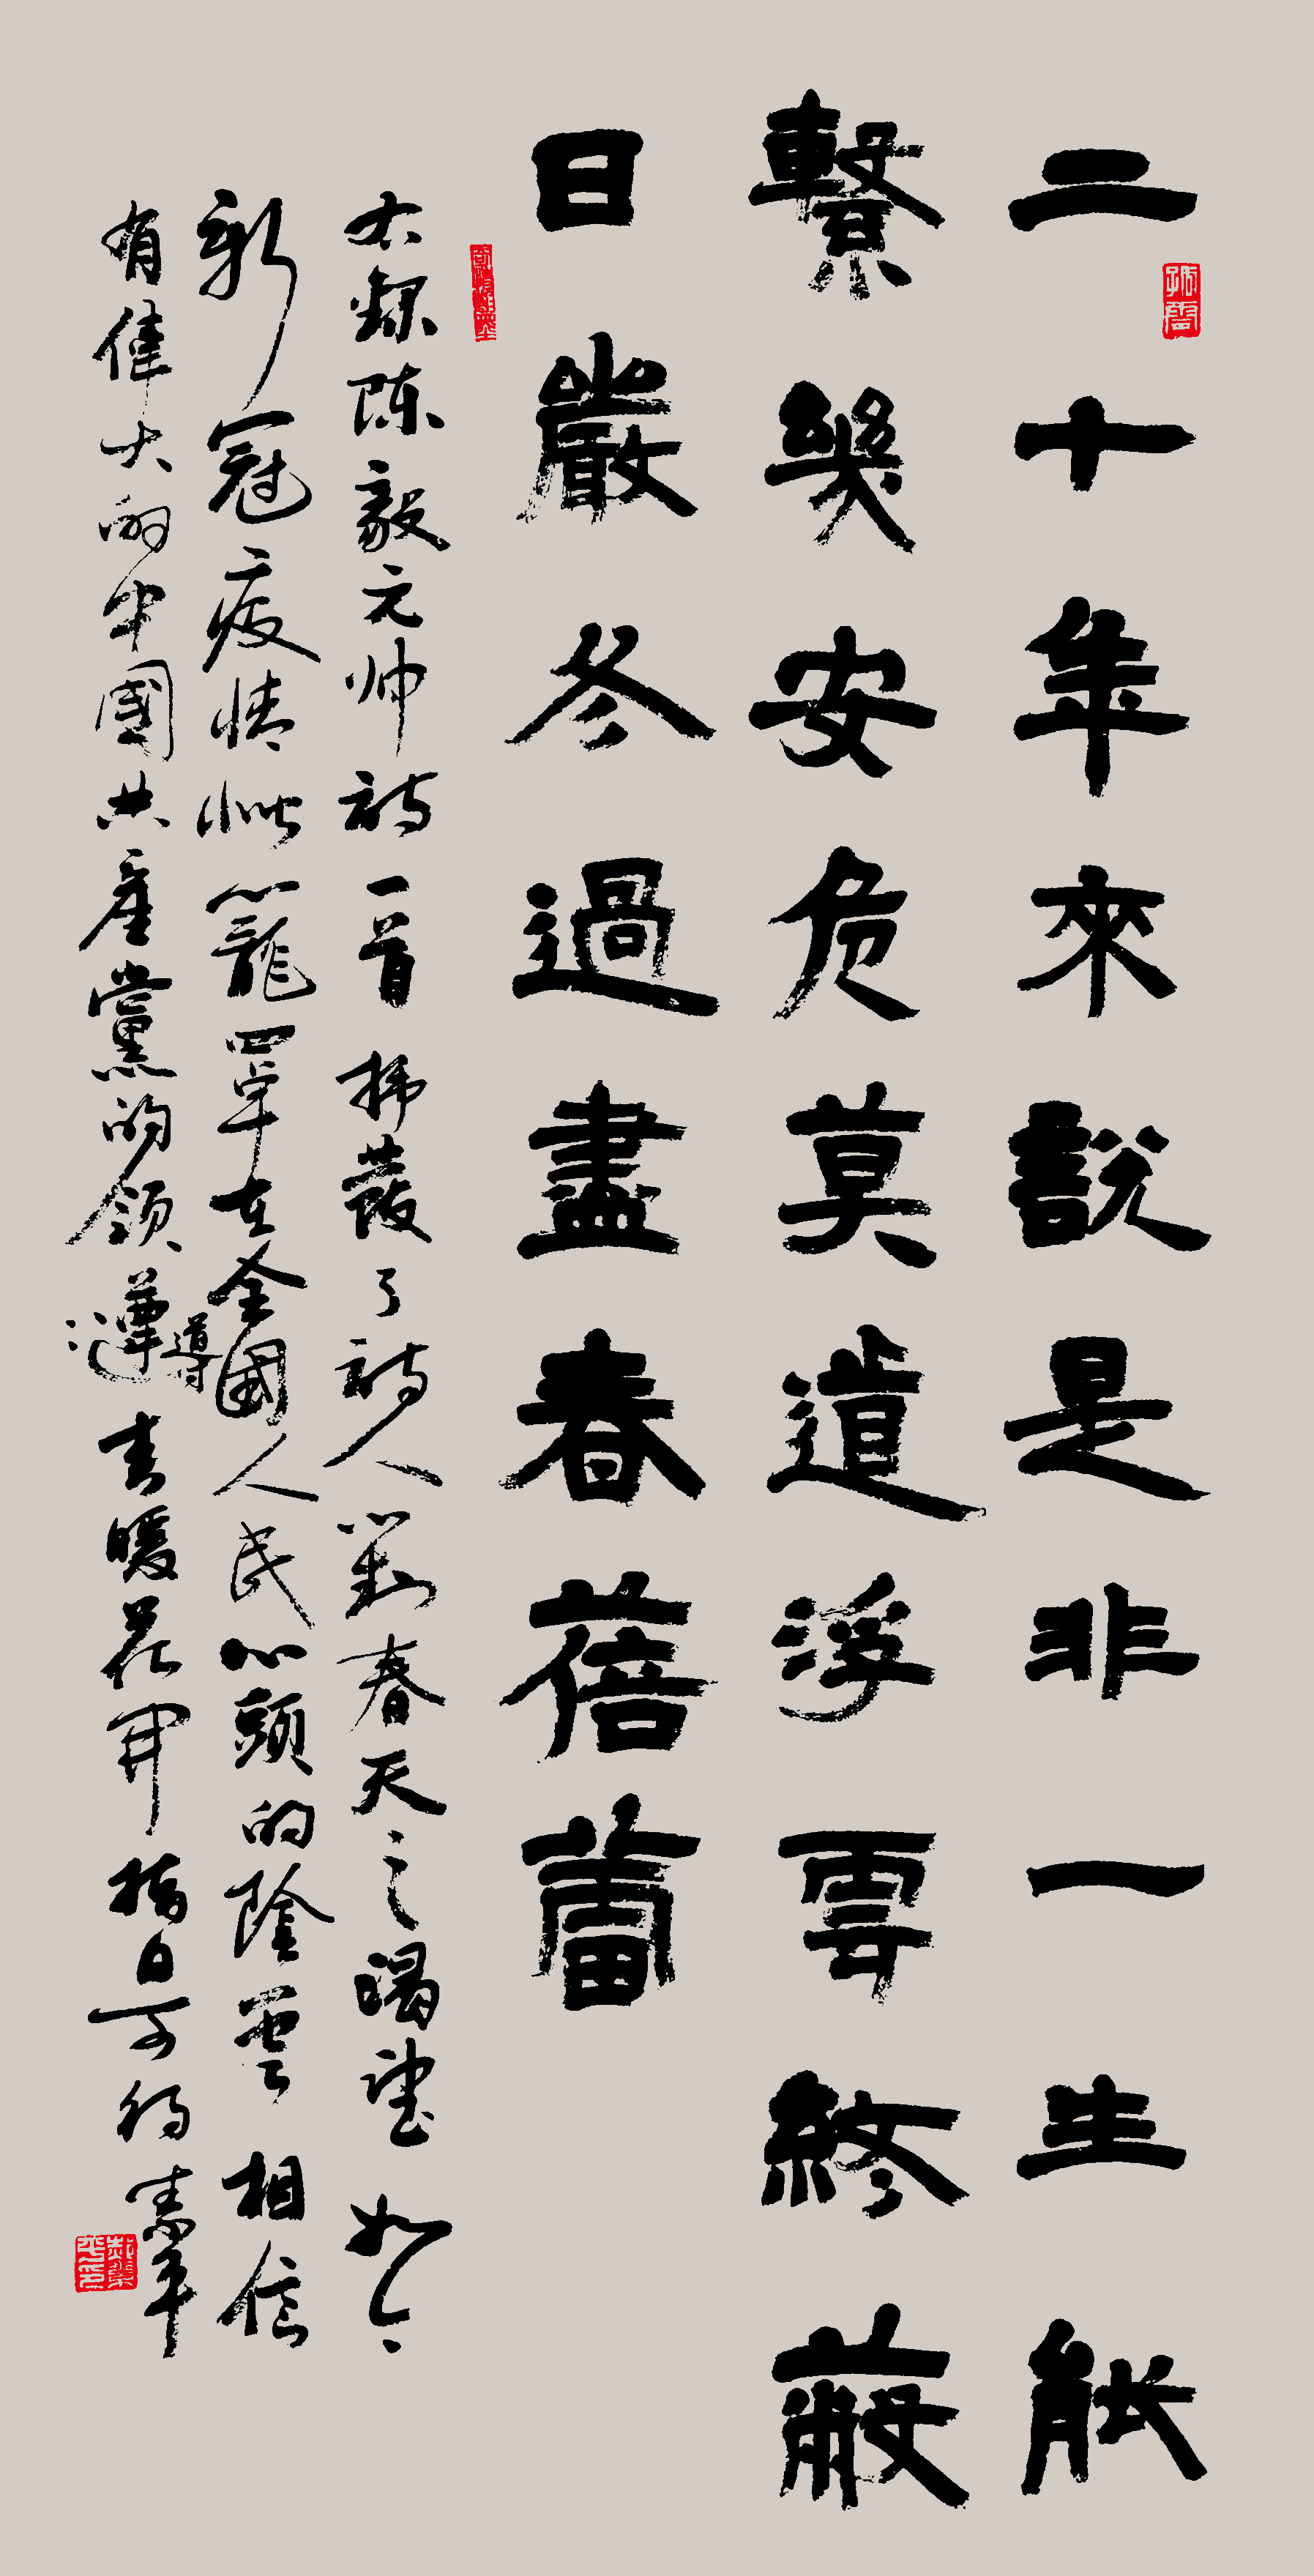 二十年來説是非一生能
繫幾安危莫道浮雲終蔽
日嚴冬過盡春蓓蕾
右録陈毅元帅詩一首抒發了詩人對春天之渴望如今
新冠疫情恍籠罩在全國人民心頭的陰雲相信
有偉大的中國共產黨的領導春暖花開指日可待素平